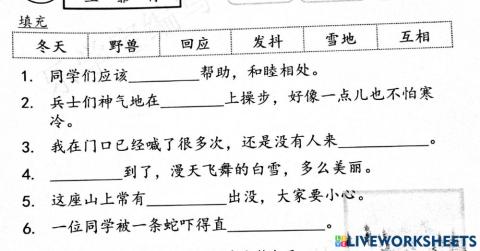 填充
冬天 野兽 回应 发抖 雪地 互相
1. 同学们应该________帮助，和睦相处。
2. 兵士们神气地在________上操步，好像一点儿也不怕寒
冷。
3. 我在门口已经喊了很多次，还是没有人来__________。
4. __________到了，漫天飞舞的白雪，多么美丽。
5. 这座山上常有__________出没，大家要小心。
6. 一位同学被一条蛇吓得直__________。
LIVEWORKSHEETS